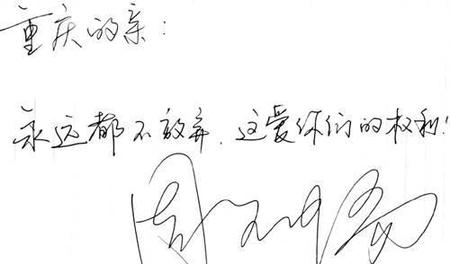 重庆的亲:
永远都不放弃,这爱你们的权利!